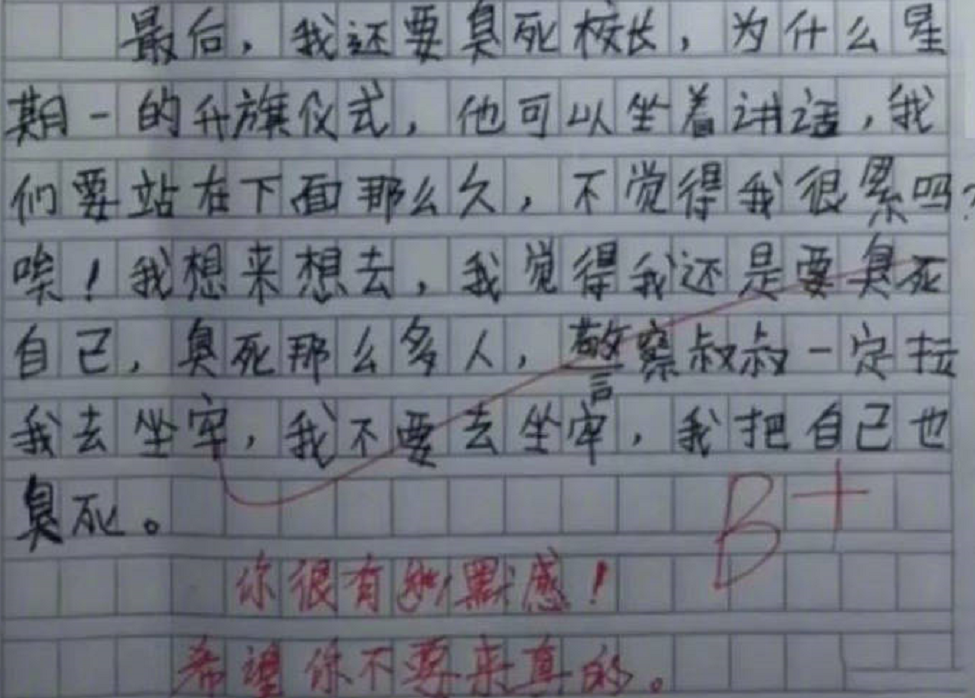 最后，我还要臭死校长，为什么星
期一的升旗仪式，他可以坐着讲话，我
们要站在下面那么久，不觉得我很累吗？
唉！我想来想去，我觉得我还是要臭死
自己，臭死那么多人，警察叔叔一定拉
我去坐牢，我不要去坐牢，我把自己也
臭死。
B+
你很有幽默感！
希望你不要来真的。